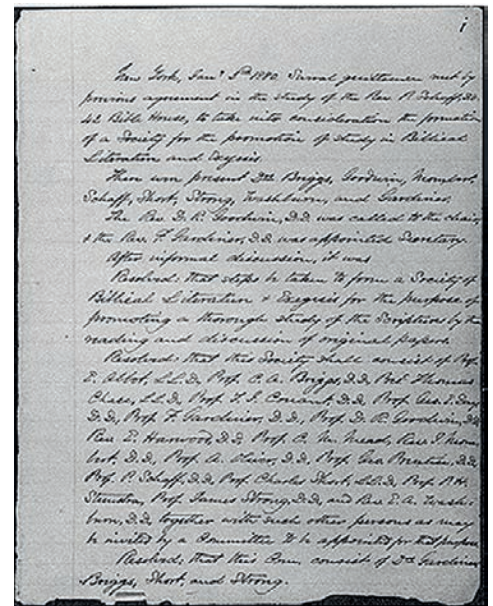 i
New York, Jany. 2nd 1880. Several gentlemen met by
previous agreement in the study of the Rev. P. Schaff, D.D.
42 Bible House, to take into consideration the formation
of a Society for the promotion of study in Biblical
Literature and Exegesis.
There were present Drs. Briggs, Goodwin, Mombert,
Schaff, Short, Strong, Washburn, and Gardiner.
The Rev. D. R. Goodwin, D.D. was called to the chair,
& the Rev. F. Gardiner, D.D. was appointed Secretary.
After informal discussion, it was
Resolved: that steps be taken to form a Society of
Biblical Literature & Exegesis for the purpose of
promoting a thorough study of the Scriptures by the
reading and discussion of original papers.
Resolved: that this Society shall consist of Prof.
E. Abbot, LL.D., Prof. C. A. Briggs, D.D., Prof. Thomas
Chase, LL.D., Prof. T. J. Conant, D.D., Prof. Geo. E. Day,
D.D., Prof. F. Gardiner, D.D., Prof. D. R. Goodwin, D.D.
Rev. E. Harwood, D.D., Prof. C. M. Mead, Rev. J. Mom-
bert, D.D., Prof. A. Oliver, D.D., Prof. Geo. Prentice, D.D.,
Prof. P. Schaff, D.D., Prof. Charles Short, LL.D., Prof. P. H.
Steenstra, Prof. James Strong, D.D., and Rev. E. A. Wash-
burn, D.D., together with such other persons as may
be invited by a Committee to be appointed for that purpose
Resolved, that this Com. consist of Drs Gardiner
Briggs, Short, and Strong.